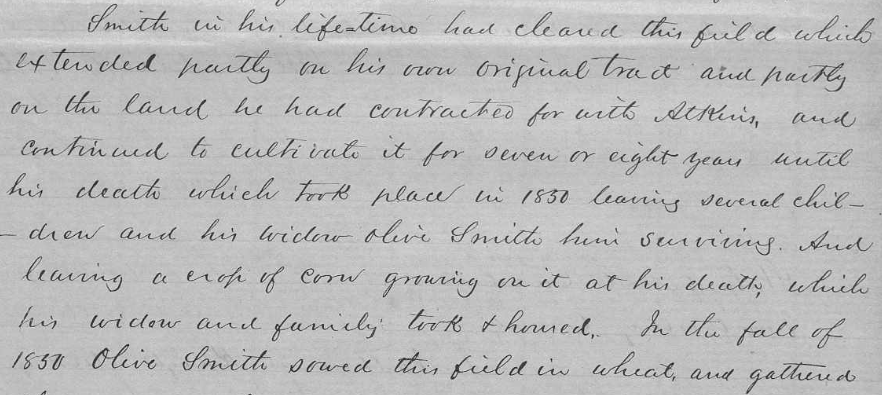 Smith in his life=time had cleared this field which
extended partly on his own original tract and partly
on the land he had contracted for with Atkins, and
continued to cultivate it for seven or eight years until
his death which took place in 1830 leaving several chil-
-dren and his widow Olive Smith him surviving. And
leaving a crop of corn growing on it at his death, which
his widow and family took & housed. In the fall of
1830 Olive Smith sowed this field in wheat, and gathered